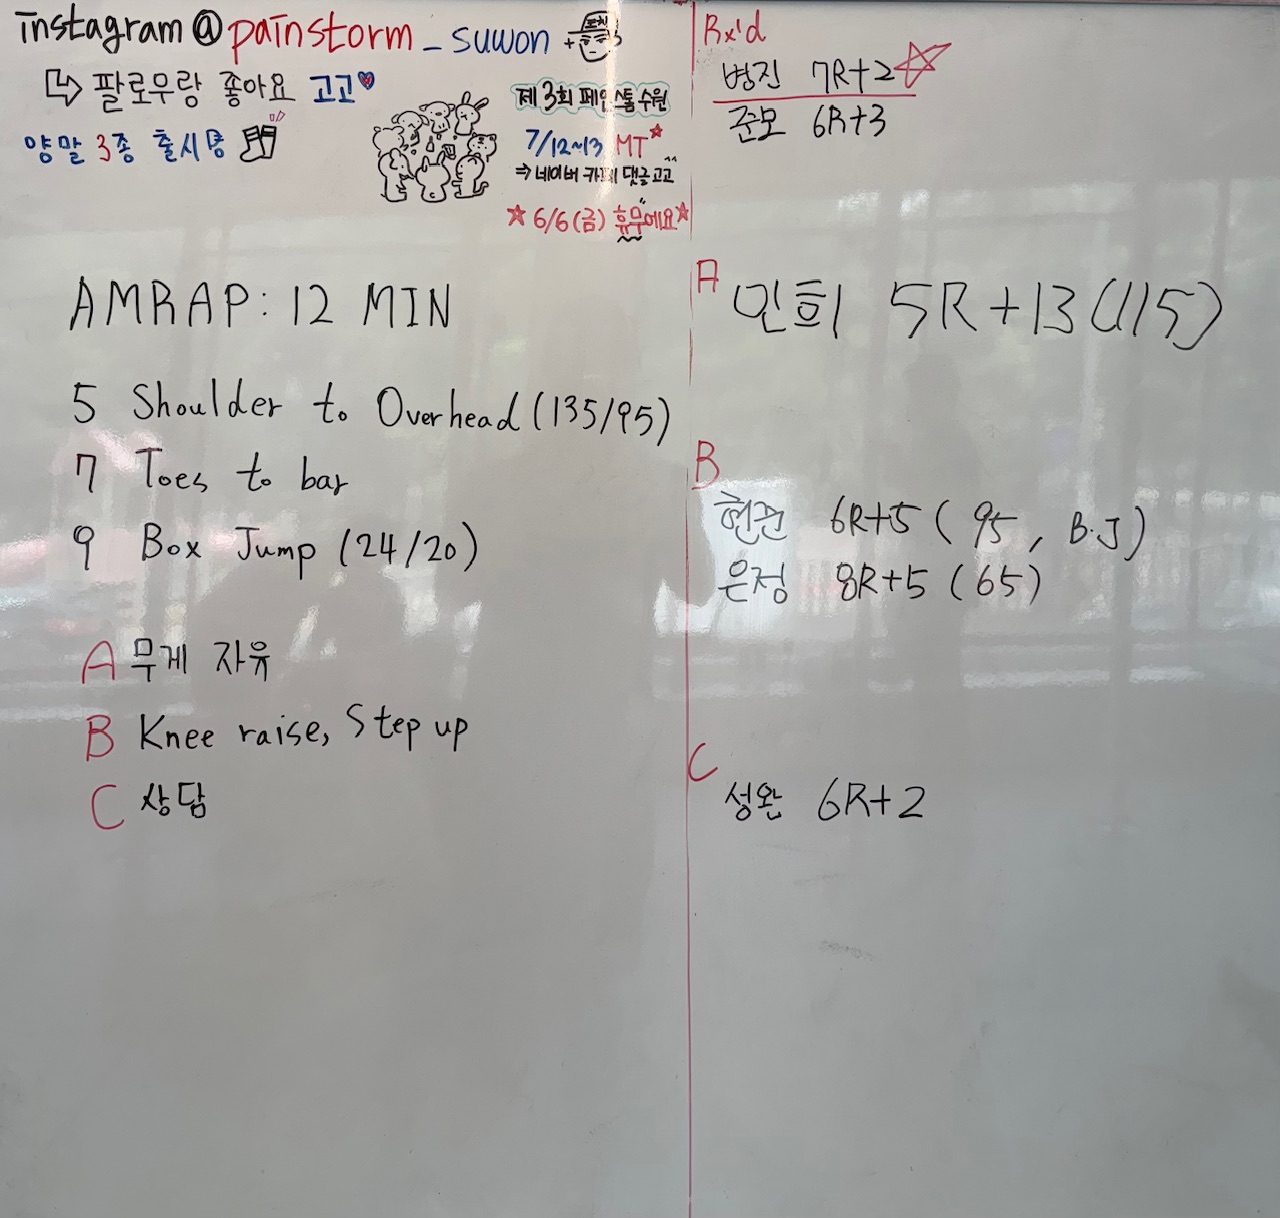 instagram@painstorm_suwon
팔로우랑 좋아요 고고
양말 3종 출시
제 3회 페인스톰 수원
7/12~13 MT
⇒ 네이버 카페 댓글 고고
☆ 6/6(금) 휴무예요 ☆
AMRAP: 12 MIN
5 Shoulder to Overhead (135/95)
7 Toes to bar
9 Box Jump (24/20)
A 무게 자유
B Knee raise, Step up
C 상담
Rx'd
병진 7R+2
준모 6R+3
A
민희 5R+13(115)
B
현준 6R+5 ( 95, B.J)
은정 8R+5 (65)
C
성완 6R+2